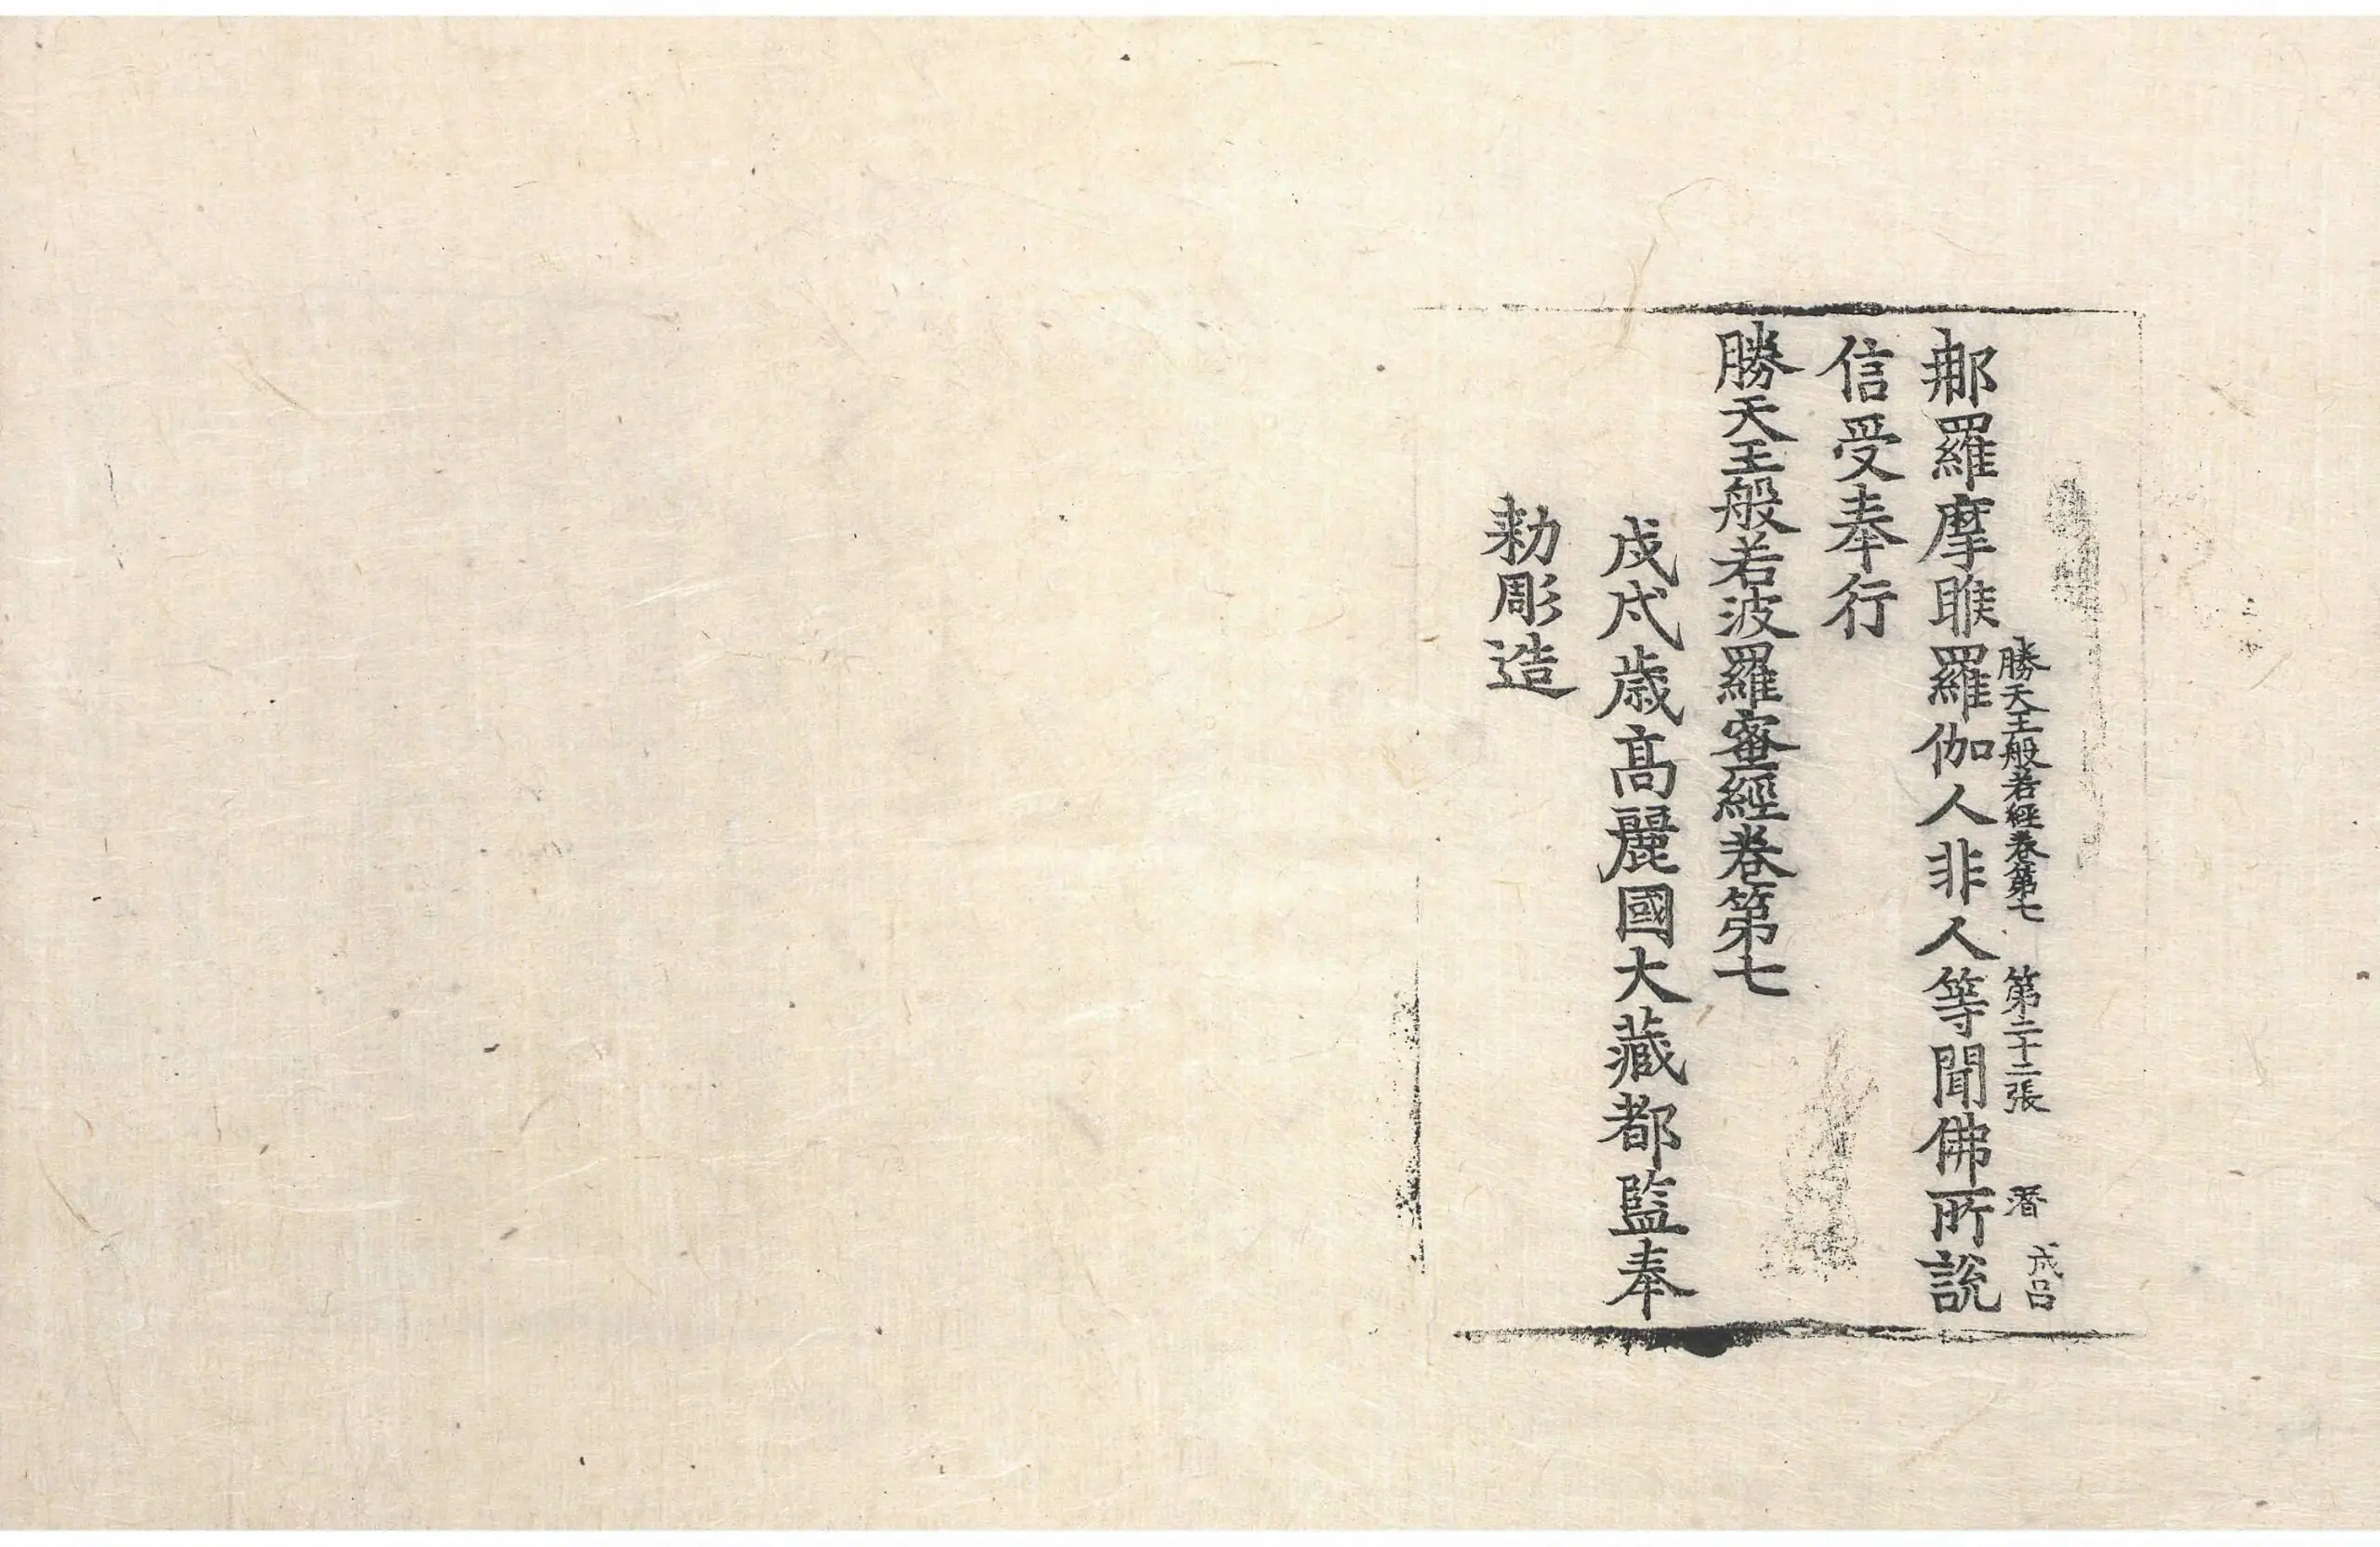 勝天王般若經卷第七　第二十二張　潛　成呂
那羅摩睺羅伽人非人等聞佛所說
信受奉行
勝天王般若波羅蜜經卷第七
戊戌歲高麗國大藏都監奉
勅彫造